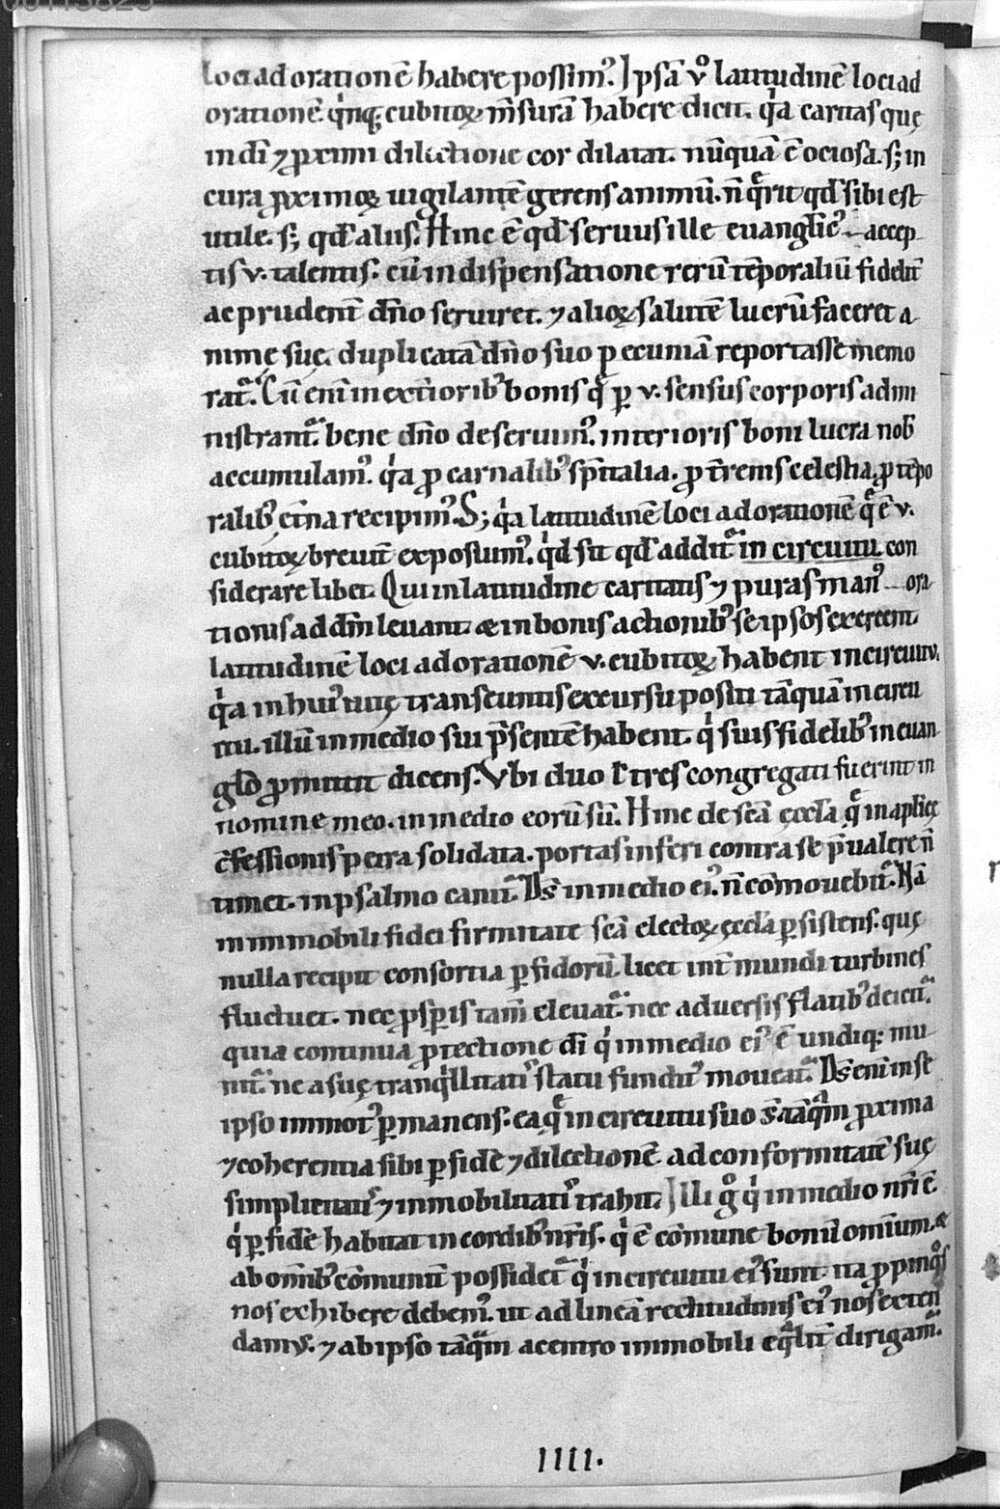 00115825
loci ad orationē habere possim᷒. Ipsā v̊ latitudinē loci ad
orationē. qⁱnq; cubitoꝝ m̄surā habere dicit. qⁱa caritas quę
in dī ⁊ ꝓximi dilectione cor dilatat. nūquā ē ociosa. s; in
cura ꝓximoꝝ uigilantē gerens animū. n̄ q̄rit qd̄ sibi est
utile. s; qd̄ aliis. Hinc ē qd̄ seruus ille euanglic᷒ accep-
tis v. talentis. cū in dispensatione rerū tēporaliū fidelit̄
ac prudent̄ dn̄o seruiret. ⁊ alioꝝ salutē lucrū faceret a-
nimę suę. duplicatā dn̄o suo pecuniā reportasse memo
rat᷑. Cū enī in exterioribꝰ bonis q̄ ꝑ v. sensus corporis admi
nistrant᷑. bene dn̄o deseruim᷒. interioris boni lucra nob̄
accumulam᷒. qⁱa ꝓ carnalibꝰ sp̄italia. ꝓ t̄renis celestia. ꝓ tēpo
ralibꝰ et̄na recipim᷒. S; qⁱa latitudinē loci ad orationē q̄ ē v.
cubitoꝝ breuit̄ exposuim᷒. qⁱd sit qd̄ addit᷑ in circuitu con
siderare libet. Qui in latitudine caritatis ⁊ puras man᷒ ora
tionis ad dn̄m leuant. & in bonis actionibꝰ se ipsos exercent.
latitudinē loci ad orationē v. cubitoꝝ habent in circuitu.
qⁱa in hui᷒ uitę transeuntis excursu positi tāquā in circu
itu. illū in medio sui p̄sentē habent. qⁱ suis fidelibꝰ in euan
glō ꝓmittit dicens. Vbi duo ł tres congregati fuerint in
nomine meo. in medio eorū sū. Hinc de scā ęccl̄a q̄ in aplicę
ɔ̄fessionis petra solidata. portas inferi contra se p̄ualere n̄
timet. in psalmo canit᷑. Ds̄ in medio ei᷒. n̄ cōmouebit᷑. Nā
in immobili fidei firmitate scā electoꝝ ęccl̄a ꝑsistens. quę
nulla recipit consortia ꝑfidorū. licet int̄ mundi turbines
fluctuet. nec ꝓsꝑis tam̄ eleuat᷑. nec aduersis flatibꝰ deicit᷑.
quia continua ꝓtectione dī qⁱ in medio ei᷒ ē undiq; mu-
nit᷑. ne a suę tranqⁱllitatis statu fundit᷒ moueat᷑. Ds̄ enī in se
ipso immot᷒ ꝑmanens. ea q̄ in circuitu suo s̄. tāqᵃm ꝓxima
⁊ coherentia sibi ꝑ fidē ⁊ dilectionē ad conformitatē suę
simplicitatis ⁊ inmobilitatis trahit. Illi g̊ qⁱ in medio nr̄i ē
qⁱ ꝑ fidē habitat in cordibꝰ nr̄is. qⁱ ē cōmune bonū omīum. &
ab om̄ibꝰ cōmunit̄ possidet᷑. qⁱ in circuitu ei᷒ sunt ita ꝓpinqͦs
nos exhibere debem᷒. ut ad lineā rectitudinis ei᷒ nos exten
dam᷒. ⁊ ab ipso tāqᵃm a centro immobili eqᵃlit̄ dirigam᷑.
IIII.